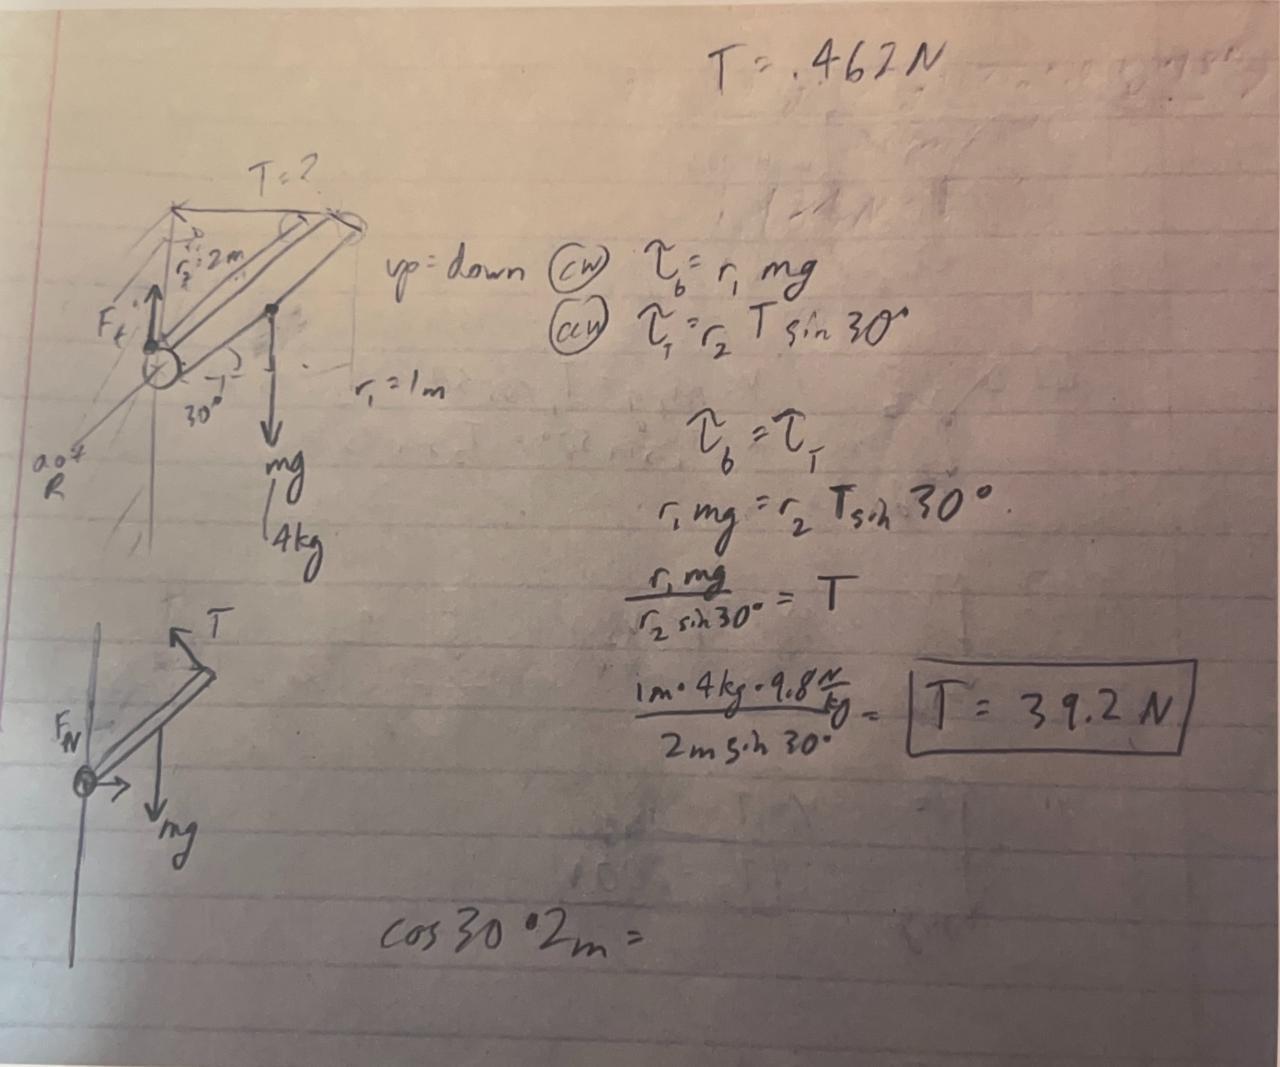 T = .462N
T = ?
r₂ = 2m
Fₜ
30°
r₁ = 1m
mg
4kg
R
up = down (cw) τ_b = r₁ mg
(ccw) τ_T = r₂ T sin 30°
τ_b = τ_T
r₁ mg = r₂ T sin 30°
r₁ mg / r₂ sin 30° = T
1m · 4kg · 9.8 N/kg / 2m sin 30° = T = 39.2 N
T
F_N
mg
cos 30 · 2m =